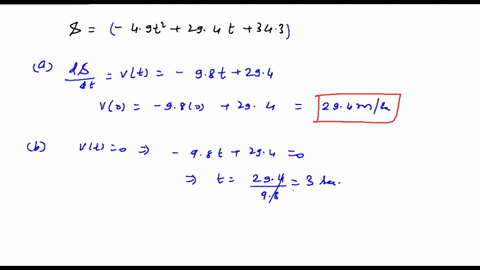 S = (- 4.9t² + 29.4t + 34.3)
(a) dS/dt = v(t) = - 9.8t + 29.4
v(0) = -9.8(0) + 29.4 = 29.4 m/s
(b) v(t) = 0 ⇒ - 9.8t + 29.4 = 0
⇒ t = 29.4/9.8 = 3 sec.